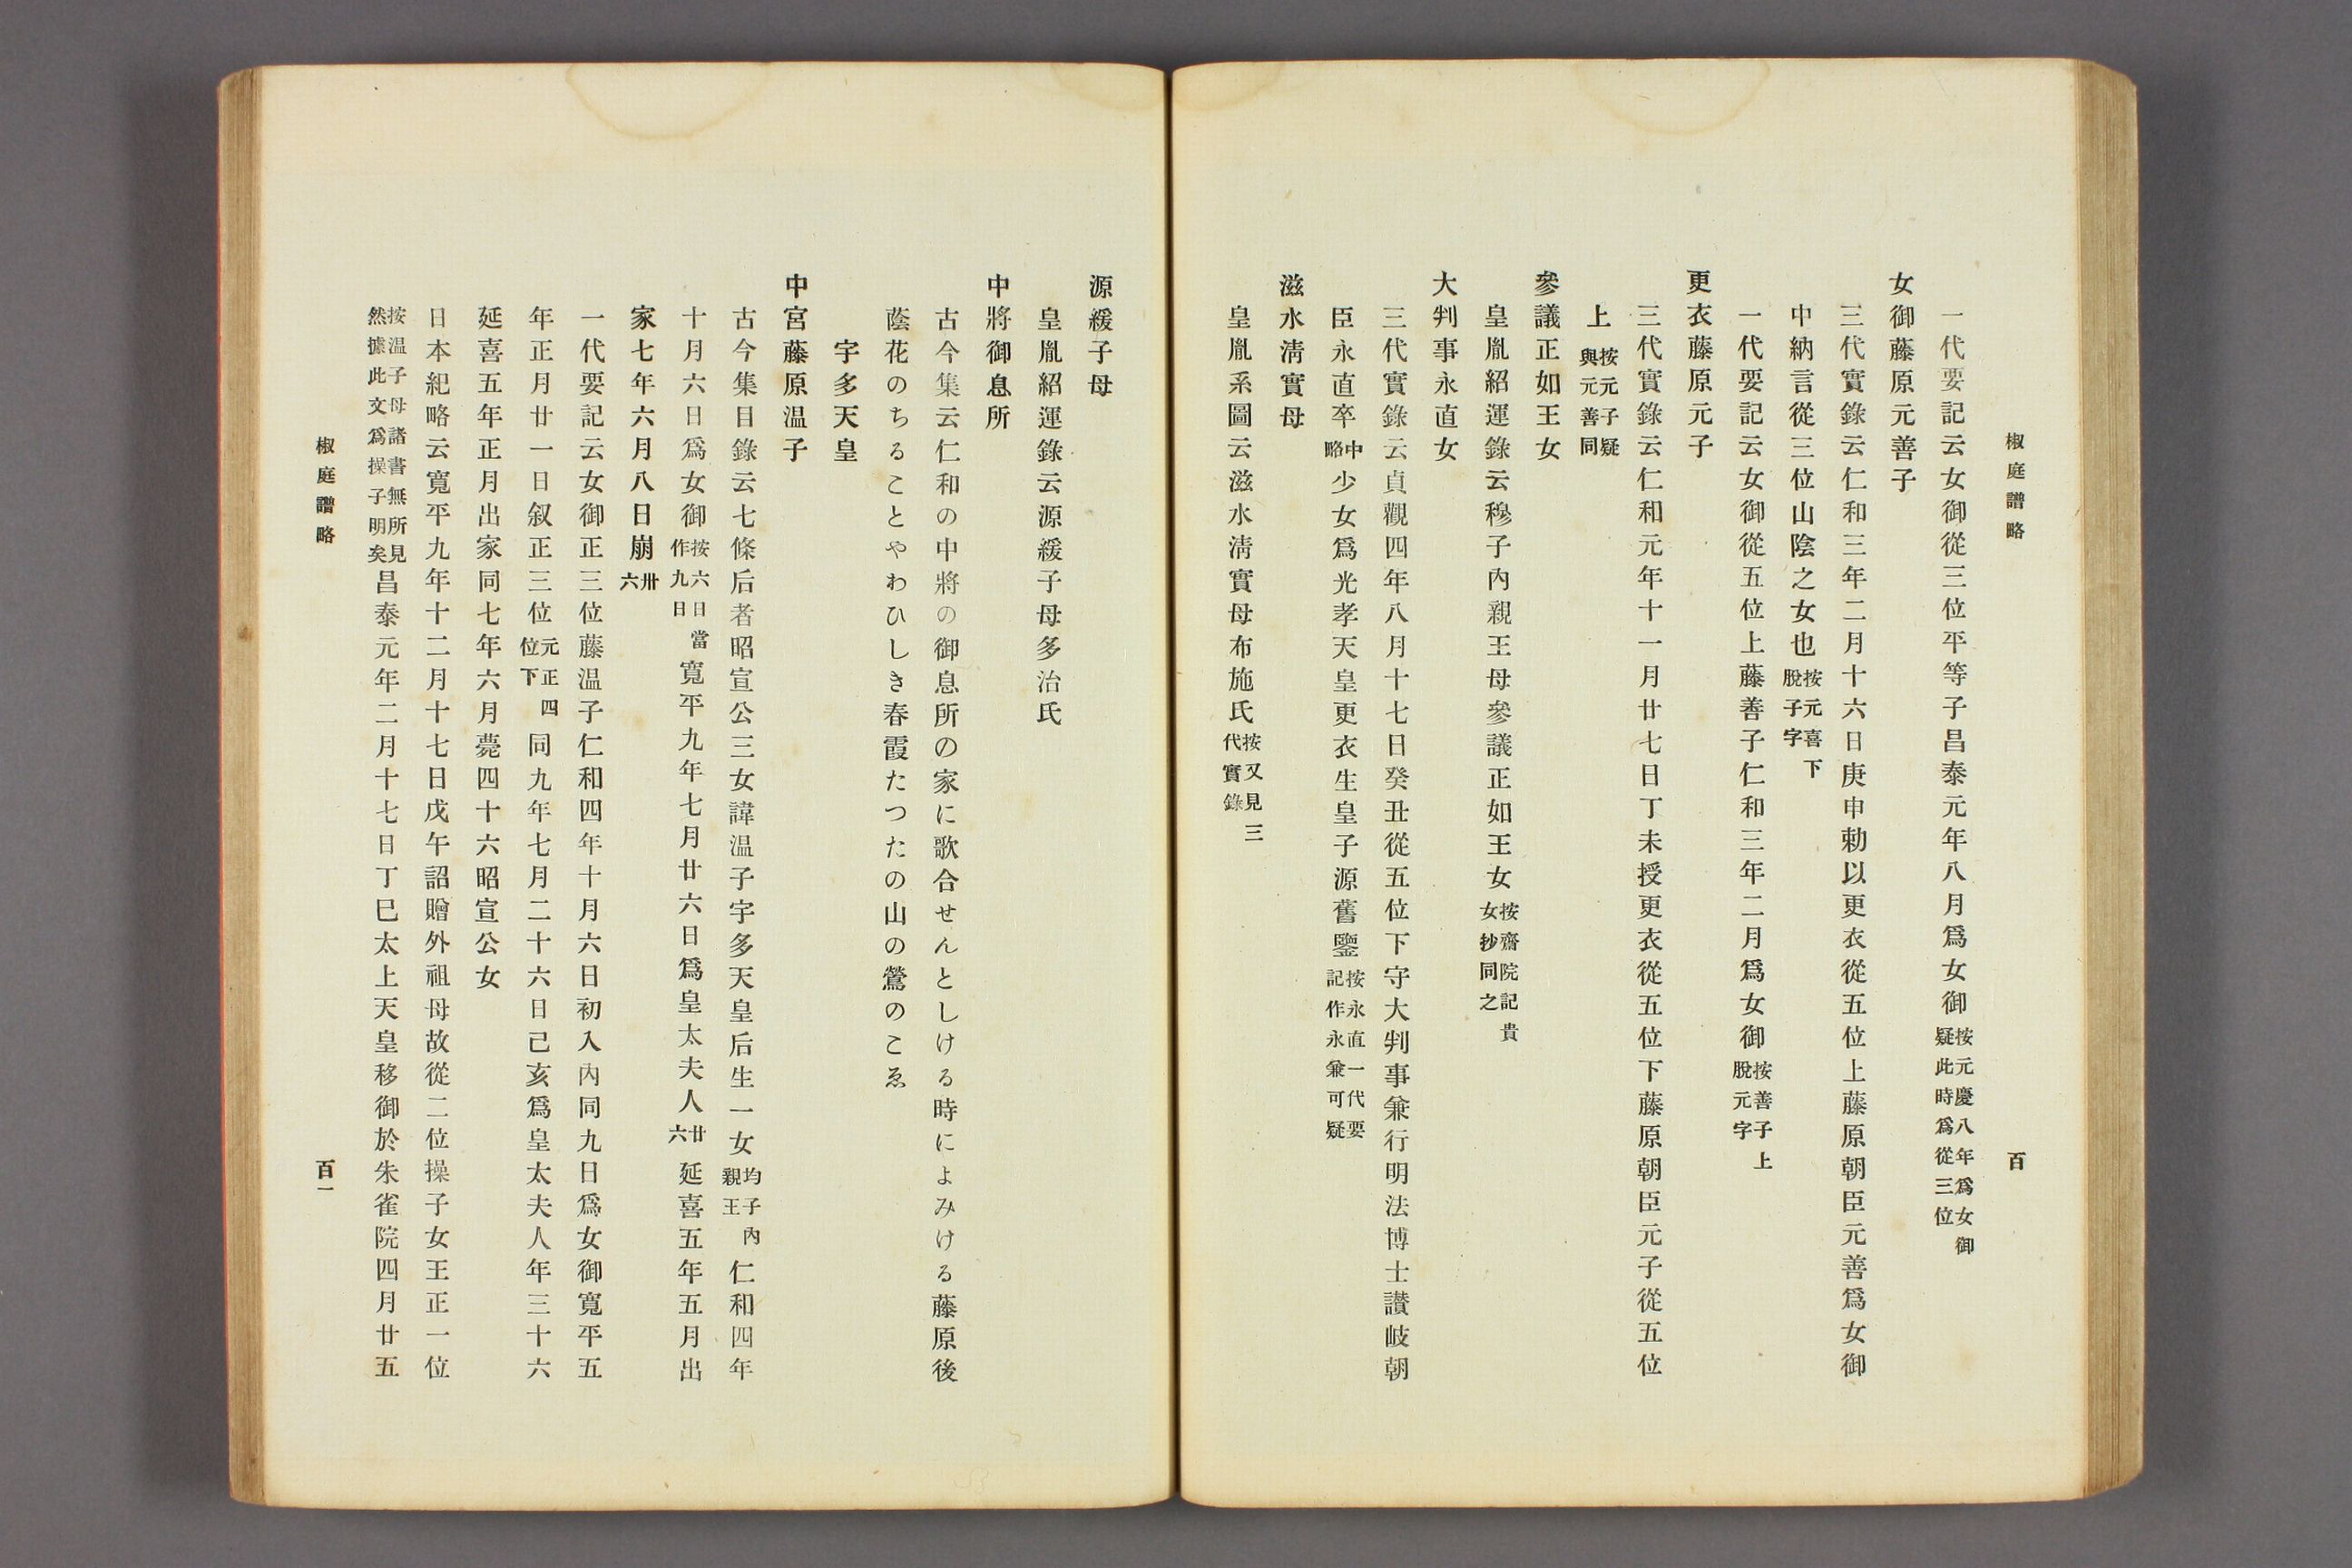 椒庭譜略
百
一代要記云女御從三位平等子昌泰元年八月爲女御按元慶八年爲女御疑此時爲從三位
女御藤原元善子
三代實錄云仁和三年二月十六日庚申勅以更衣從五位上藤原朝臣元善爲女御
中納言從三位山陰之女也按元喜下脫子字
一代要記云女御從五位上藤善子仁和三年二月爲女御按善子上脫元字
更衣藤原元子
三代實錄云仁和元年十一月廿七日丁未授更衣從五位下藤原朝臣元子從五位
上按元子疑與元善同
參議正如王女
皇胤紹運錄云穆子內親王母參議正如王女按齋院記貴女抄同之
大判事永直女
三代實錄云貞觀四年八月十七日癸丑從五位下守大判事兼行明法博士讃岐朝
臣永直卒中略少女爲光孝天皇更衣生皇子源舊鑒按永直一代要記作永兼可疑
滋水淸實母
皇胤系圖云滋水淸實母布施氏按又見三代實錄
源緩子母
皇胤紹運錄云源緩子母多治氏
中將御息所
古今集云仁和の中將の御息所の家に歌合せんとしける時によみける藤原後
蔭花のちることやわひしき春霞たつたの山の鶯のこゑ
宇多天皇
中宮藤原温子
古今集目錄云七條后者昭宣公三女諱温子宇多天皇后生一女均子內親王仁和四年
十月六日爲女御按六日當作九日寬平九年七月廿六日爲皇太夫人廿六延喜五年五月出
家七年六月八日崩卅六
一代要記云女御正三位藤温子仁和四年十月六日初入內同九日爲女御寬平五
年正月廿一日叙正三位元正四位下同九年七月二十六日己亥爲皇太夫人年三十六
延喜五年正月出家同七年六月薨四十六昭宣公女
日本紀略云寬平九年十二月十七日戊午詔贈外祖母故從二位操子女王正一位
按温子母諸書無所見然據此文爲操子明矣昌泰元年二月十七日丁巳太上天皇移御於朱雀院四月廿五
椒庭譜略
百一